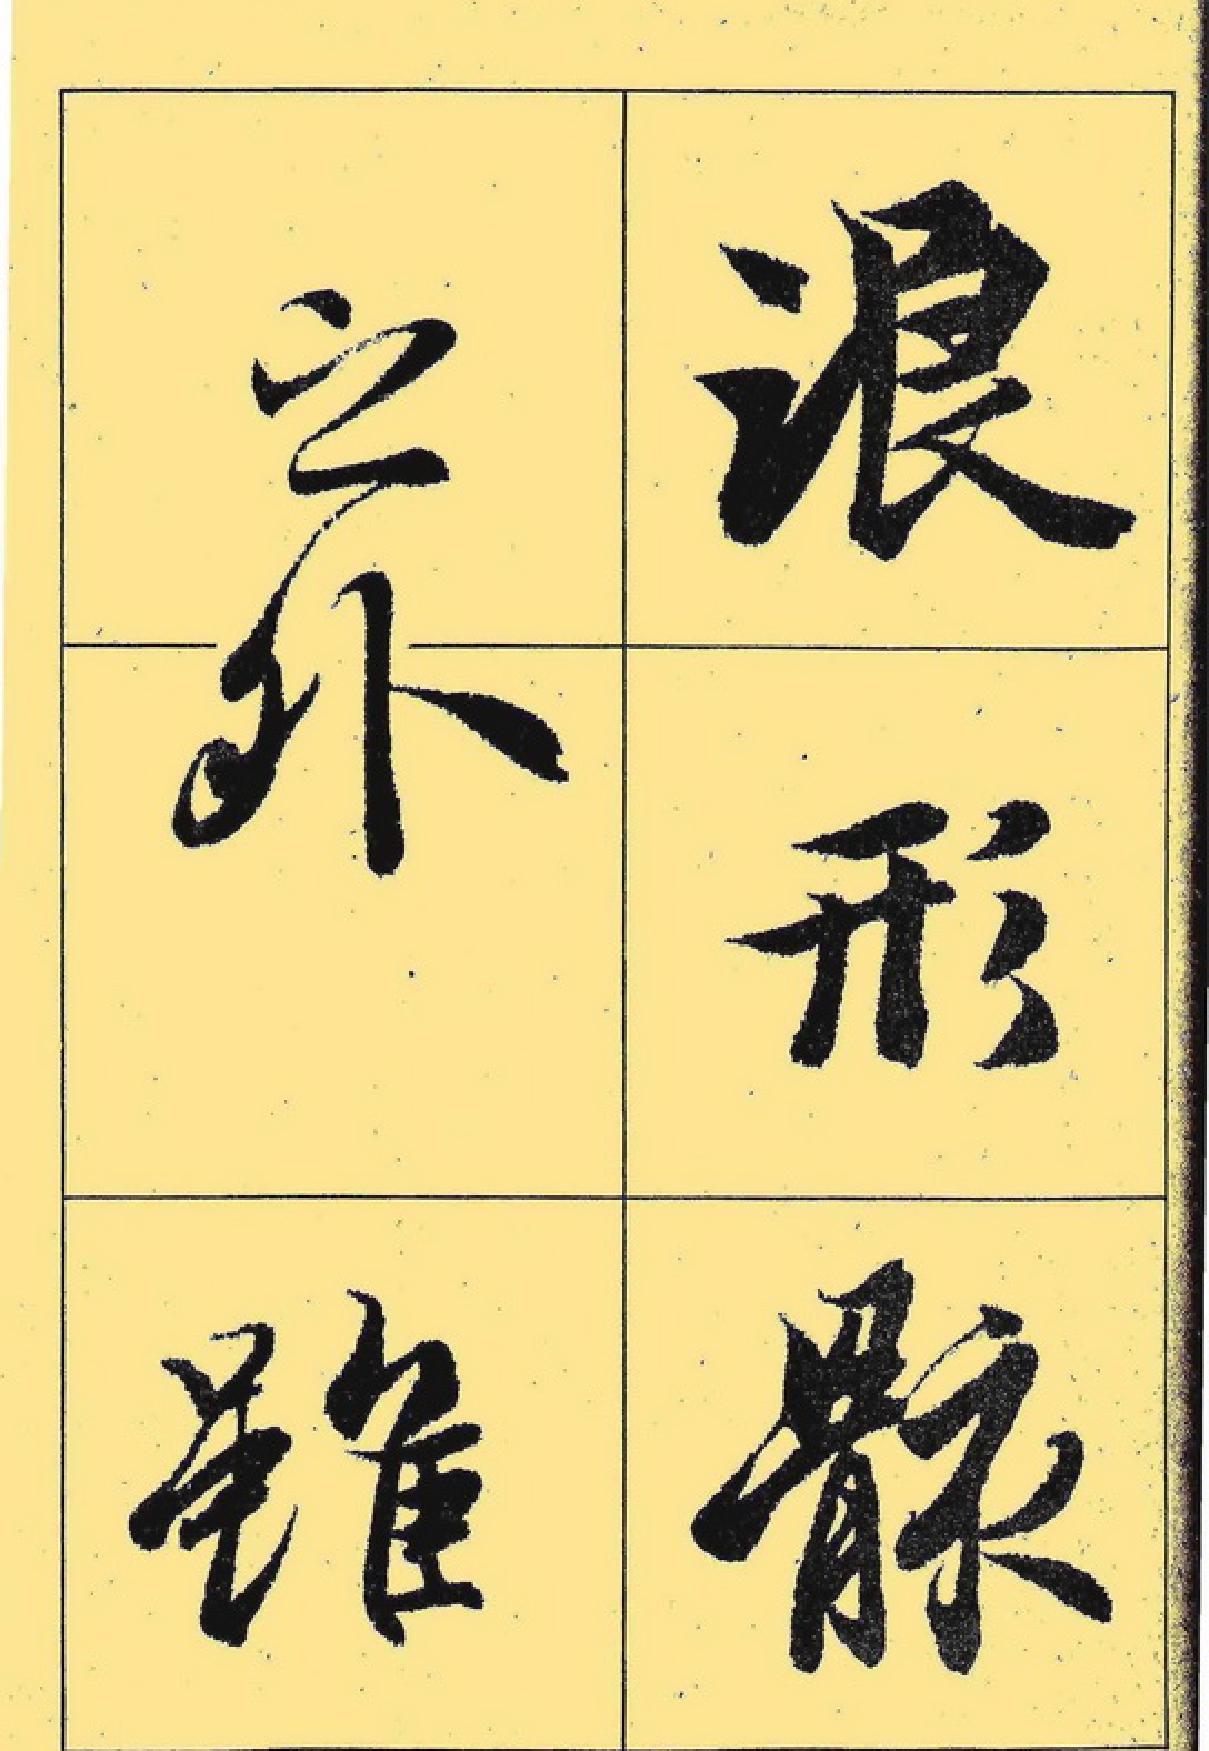 浪形骸
之外雖